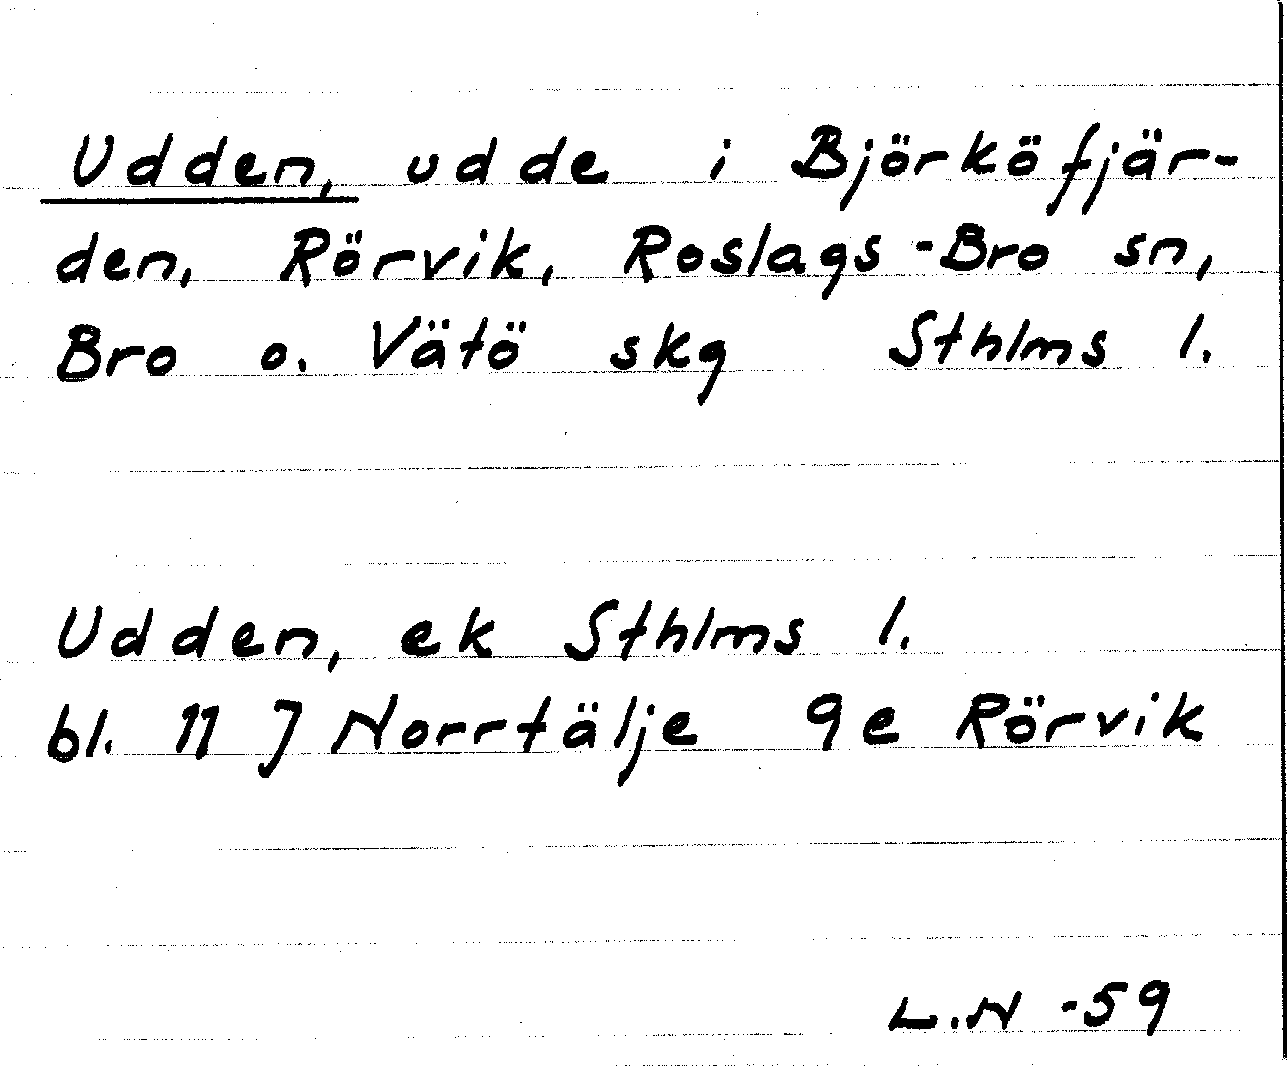 Udden, udde i Björköfjär-
den, Rörvik, Roslags-Bro sn,
Bro o. Vätö skg Sthlms l.
Udden, ek Sthlms l.
bl. 11 J Norrtälje 9e Rörvik
L.N -59